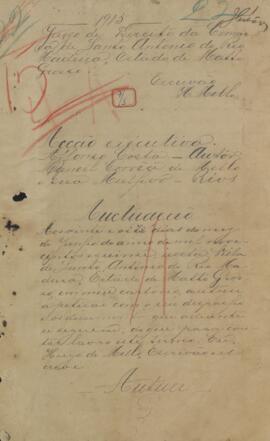 1915
Juizo de Direito da Comar
ca de Santo Antonio do Rio
Madeira, Estado de Matto
Grosso
Escrivão
H Mello
Acção executiva.
Affonso Costa - Autor
Manoel Corrêa de Mello
e sua Mulher - Réos
Autuação
e oito dias do mez
de do anno de mil nove
centos e quinze, nesta Villa
de Santo Antonio do Rio Ma
deira, Estado de Matto Gros
so, em meu cartorio, autuei
a petição com o seu despacho
e documentos que adiante
se seguem, do que para cons
tar lavro este termo. Eu,
Hugo de Mello, Escrivão es
crevi
Autuei